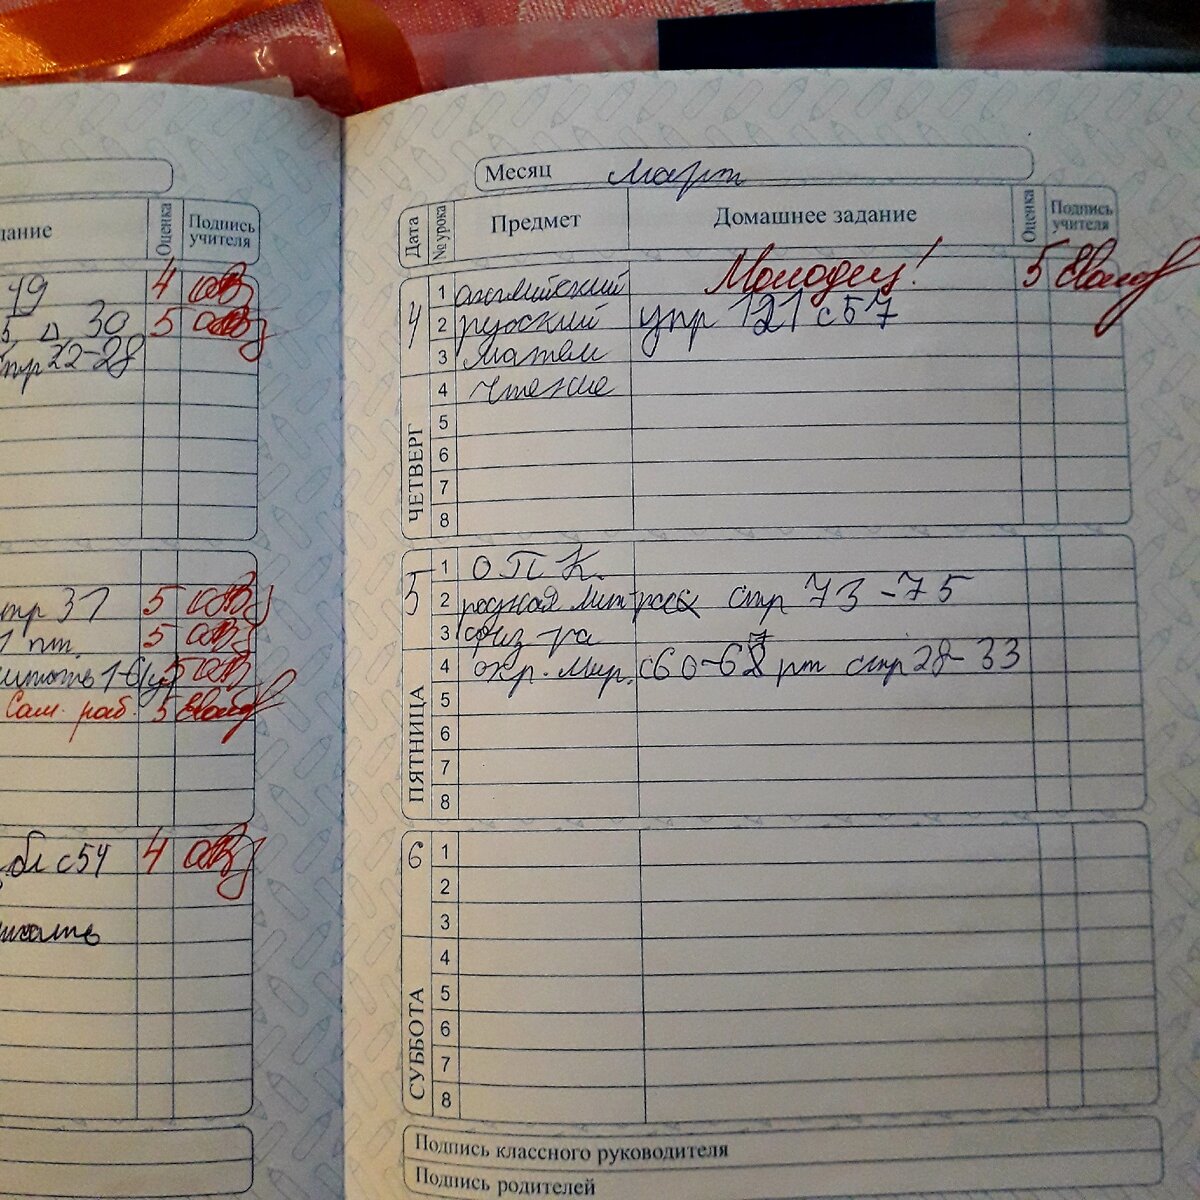 дание
Оценка
Подпись учителя
49
4
5 Δ 30
5
стр 22-28
стр 31
5
1 пт.
5
читать 1-6
5
Сам. раб.
5
с54
4
читать
Месяц Март
Дата
№ урока
Предмет
Домашнее задание
Оценка
Подпись учителя
4
ЧЕТВЕРГ
1 английский Молодец! 5
2 русский упр 121 с57
3 матем
4 чтение
5
6
7
8
5
ПЯТНИЦА
1 О П К.
2 родная лит-ра стр 73-75
3 физ-ра
4 окр. мир. с60-67 рт стр 28-33
5
6
7
8
6
СУББОТА
1
2
3
4
5
6
7
8
Подпись классного руководителя
Подпись родителей